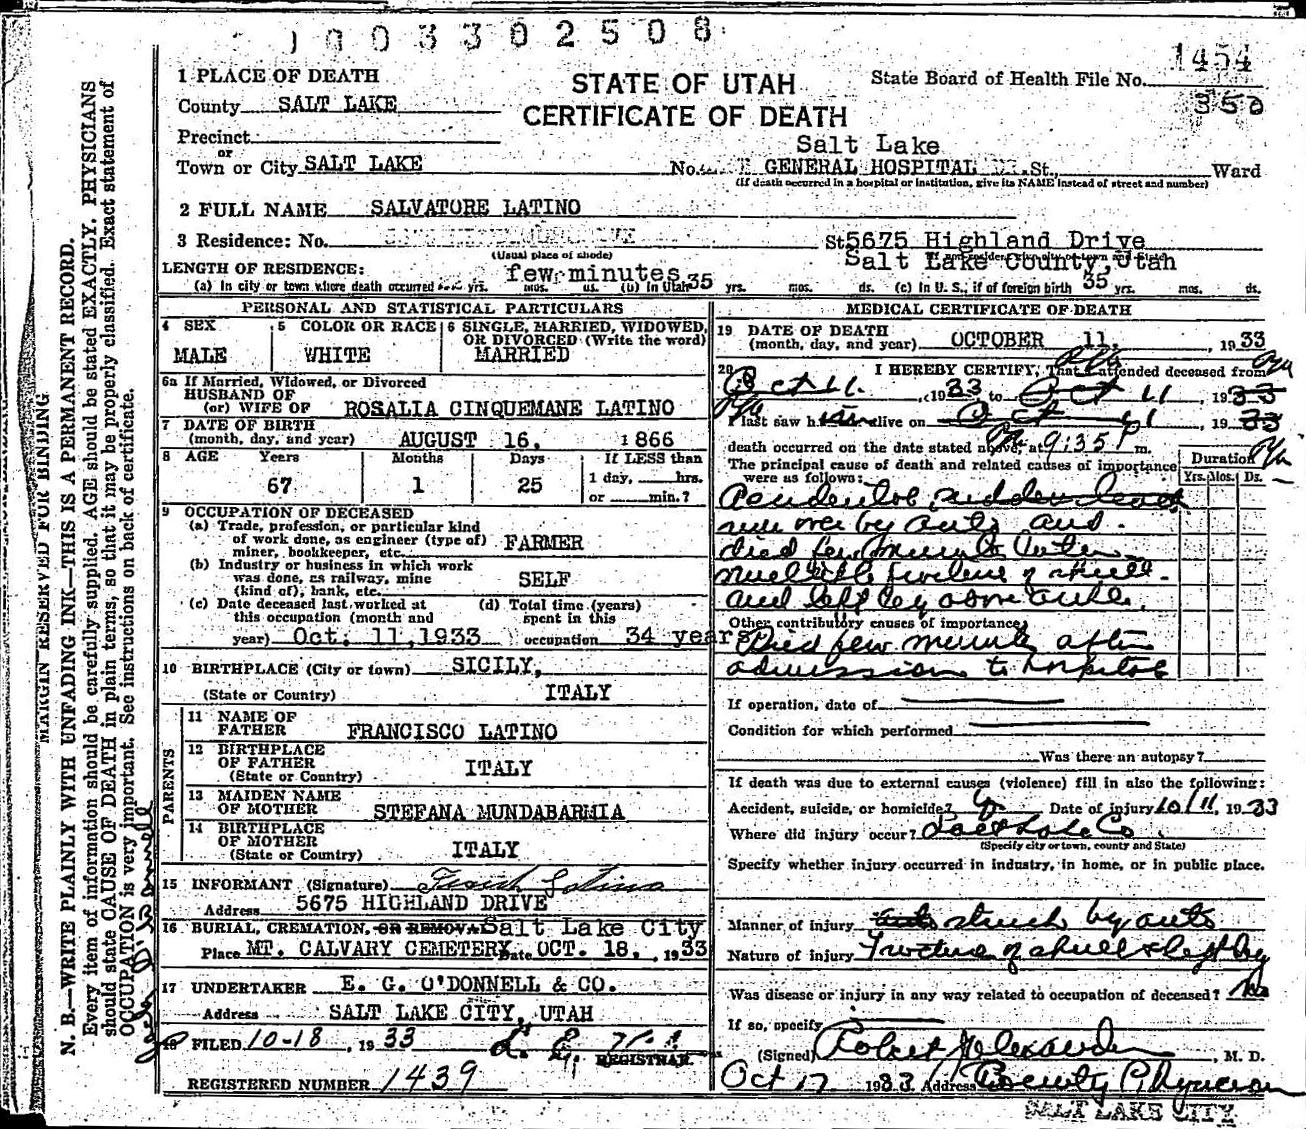 1003302508
1454
1 PLACE OF DEATH
STATE OF UTAH
State Board of Health File No.
350
County SALT LAKE
CERTIFICATE OF DEATH
Precinct
Salt Lake
or
Town or City SALT LAKE No. GENERAL HOSPITAL St., Ward
(If death occurred in a hospital or institution, give its NAME instead of street and number)
2 FULL NAME SALVATORE LATINO
3 Residence: No. St 5675 Highland Drive
(Usual place of abode)
Salt Lake County, Utah
LENGTH OF RESIDENCE: few minutes
(a) In city or town where death occurred yrs. mos. ds. (b) In Utah 35 yrs. mos. ds. (c) In U. S., if of foreign birth 35 yrs. mos. ds.
PERSONAL AND STATISTICAL PARTICULARS
4 SEX
MALE
5 COLOR OR RACE
WHITE
6 SINGLE, MARRIED, WIDOWED,
OR DIVORCED (Write the word)
MARRIED
6a If Married, Widowed, or Divorced
HUSBAND OF
(or) WIFE OF ROSALIA CINQUEMANE LATINO
7 DATE OF BIRTH
(month, day, and year) AUGUST 16, 1866
8 AGE Years Months Days If LESS than
67 1 25 1 day, hrs.
or min.?
9 OCCUPATION OF DECEASED
(a) Trade, profession, or particular kind
of work done, as engineer (type of)
miner, bookkeeper, etc. FARMER
(b) Industry or business in which work
was done, as railway, mine
(kind of), bank, etc. SELF
(c) Date deceased last worked at
this occupation (month and
year) Oct. 11, 1933
(d) Total time (years)
spent in this
occupation 34 years
10 BIRTHPLACE (City or town), SICILY,
(State or Country) ITALY
PARENTS
11 NAME OF
FATHER FRANCISCO LATINO
12 BIRTHPLACE
OF FATHER
(State or Country) ITALY
13 MAIDEN NAME
OF MOTHER STEFANA MUNDABARMIA
14 BIRTHPLACE
OF MOTHER
(State or Country) ITALY
15 INFORMANT (Signature) Latino
Address 5675 HIGHLAND DRIVE
16 BURIAL, CREMATION, OR REMOVAL Salt Lake City
Place MT. CALVARY CEMETERY Date OCT. 18, 1933
17 UNDERTAKER E. G. O'DONNELL & CO.
Address SALT LAKE CITY, UTAH
18 FILED 10-18, 1933
REGISTRAR
REGISTERED NUMBER 1439
MEDICAL CERTIFICATE OF DEATH
19 DATE OF DEATH
(month, day, and year) OCTOBER 11, 1933
20 I HEREBY CERTIFY, That I attended deceased from
Oct 11, 1933 to Oct 11, 1933
I last saw h alive on Oct 11, 1933
death occurred on the date stated above, at 9:35 P m.
The principal cause of death and related causes of importance
were as follows:
Duration
Yrs. Mos. Ds.
Accidental sudden death
run over by auto and
died few minutes later
multiple fracture of skull
and left leg above ankle.
Other contributory causes of importance:
Died few minutes after
admission to hospital
If operation, date of
Condition for which performed
Was there an autopsy?
If death was due to external causes (violence) fill in also the following:
Accident, suicide, or homicide? Date of injury 10/11, 1933
Where did injury occur? Salt Lake Co.
(Specify city or town, county and State)
Specify whether injury occurred in industry, in home, or in public place.
Manner of injury auto struck by auto
Nature of injury Fracture of skull & left leg
Was disease or injury in any way related to occupation of deceased? No
If so, specify
(Signed) Robert Alexander, M. D.
Oct 17 1933 Address County Physician
SALT LAKE CITY
MARGIN RESERVED FOR BINDING
N. B.—WRITE PLAINLY WITH UNFADING INK—THIS IS A PERMANENT RECORD.
Every item of information should be carefully supplied. AGE should be stated EXACTLY. PHYSICIANS
should state CAUSE OF DEATH in plain terms, so that it may be properly classified. Exact statement of
OCCUPATION is very important. See instructions on back of certificate.